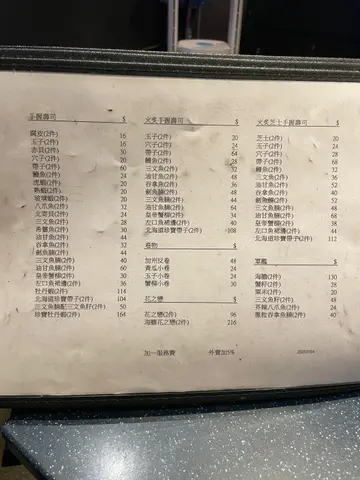 手握壽司 $
腐皮(2件) 16
玉子(2件) 16
赤貝(2件) 30
穴子(2件) 20
帶子(2件) 60
鰻魚(2件) 24
虎蝦(2件) 20
熟蝦(2件) 20
玻璃蝦(2件) 20
八爪魚(2件) 32
北寄貝(2件) 24
三文魚(2件) 28
希靈魚(2件) 30
油甘魚(2件) 44
吞拿魚(2件) 32
劍魚腩(2件) 44
三文魚腩(2件) 40
油甘魚腩(2件) 60
皇帝蟹柳(2件) 30
左口魚裙邊(2件) 36
牡丹蝦(2件) 114
北海道珍寶帶子(2件) 104
三文魚腩配三文魚籽(2件) 50
珍寶牡丹蝦(2件) 164
火炙手握壽司 $
玉子(2件) 20
穴子(2件) 24
帶子(2件) 64
鰻魚(2件) 28
三文魚(2件) 32
油甘魚(2件) 48
吞拿魚(2件) 36
劍魚腩(2件) 48
三文魚腩(2件) 44
油甘魚腩(2件) 64
皇帝蟹柳(2件) 34
左口魚裙邊(2件) 40
北海道珍寶帶子(2件) 108
卷物 $
加州反卷 48
青瓜小卷 24
玉子小卷 24
蟹柳小卷 30
花之戀 $
花之戀(2件) 96
海膽花之戀(2件) 216
火炙芝士手握壽司 $
芝士(2件) 20
玉子(2件) 24
穴子(2件) 28
帶子(2件) 68
鰻魚(2件) 32
三文魚(2件) 36
油甘魚(2件) 52
吞拿魚(2件) 40
劍魚腩(2件) 52
三文魚腩(2件) 48
油甘魚腩(2件) 68
皇帝蟹柳(2件) 38
左口魚裙邊(2件) 44
北海道珍寶帶子(2件) 112
軍艦 $
海膽(2件) 130
蟹籽(2件) 28
粟米(2件) 20
三文魚籽(2件) 48
芥辣八爪魚(2件) 24
蔥粒吞拿魚腩(2件) 40
加一服務費 外賣加5%